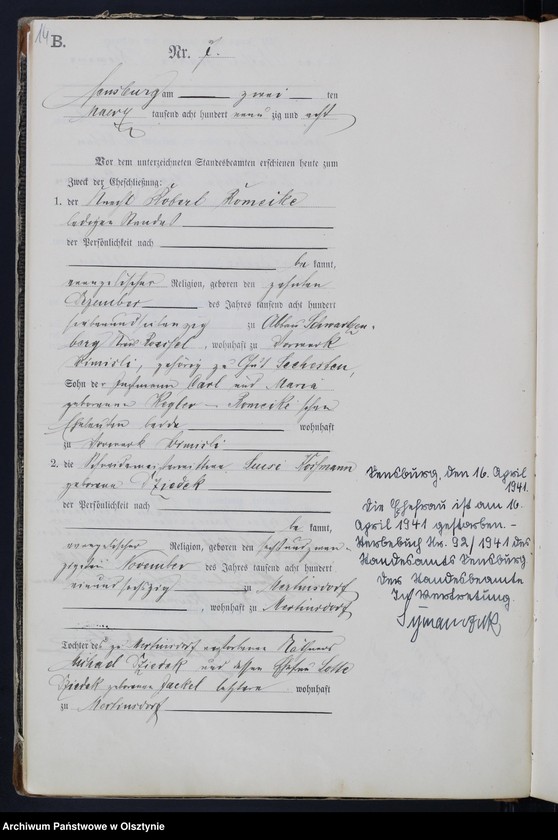 14
B.
Nr. 7.
Sensburg am zwei ten
Maerz tausend acht hundert neun zig und acht
Vor dem unterzeichneten Standesbeamten erschienen heute zum
Zweck der Eheschließung:
1. der Knecht Robert Romeike
ledigen Standes
der Persönlichkeit nach
be kannt,
evangelischer Religion, geboren den zehnten
Dezember des Jahres tausend acht hundert
siebenundsiebenzig zu
berg Kreis Roessel, wohnhaft zu Vorwerk
gehörig zu Gut Seehesten,
Sohn der Carl und Maria
geborenen Romeike'schen
Eheleuten beide wohnhaft
zu Vorwerk
2. die Suse
geborene Dziedek
der Persönlichkeit nach
be kannt,
evangelischer Religion, geboren den sechsundzwan-
zigsten November des Jahres tausend acht hundert
einundsechszig zu Mertinsdorf
, wohnhaft zu Mertinsdorf
Tochter des zu Mertinsdorf verstorbenen Käthners
Michael Dziedek und dessen Ehefrau
Dziedek geborene Jackel letztere wohnhaft
zu Mertinsdorf
Sensburg, den 16. April
1941.
Die Ehefrau ist am 16.
April 1941 gestorben. -
Sterbebuch Nr. 92/1941 des
Standesamts Sensburg.
Der Standesbeamte
In Vertretung.
Symanczyk
Archiwum Państwowe w Olsztynie